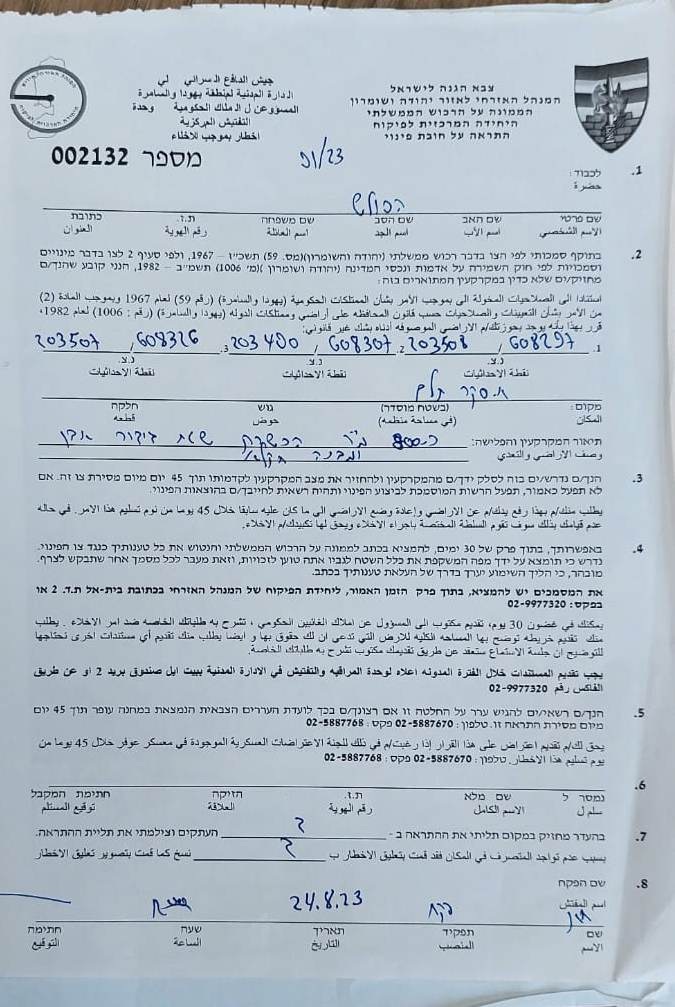 צבא הגנה לישראל
המנהל האזרחי לאזור יהודה ושומרון
הממונה על הרכוש הממשלתי
היחידה המרכזית לפיקוח
התראה על חובת פינוי
جيش الدافع السرائي لي
الدارة المدنية لمنطقة يهودا والسامرة
المسؤوعن ل الملاك الحكومية وحدة
التفتيش المركزية
اخطار بموجب للاخلاء
מספר 002132
1. לכבוד:
حضرة
שם פרטי שם האב שם הסב שם משפחה ת.ז. כתובת
الاسم الشخصي اسم الأب اسم الجد اسم العائلة رقم الهوية العنوان
2. בתוקף סמכותי לפי הצו בדבר רכוש ממשלתי (יהודה והשומרון)(מס. 59) תשכ״ז – 1967, ולפי סעיף 2 לצו בדבר מינויים
וסמכויות לפי חוק השמירה על אדמות ונכסי המדינה (יהודה ושומרון )(מ׳ 1006) תשמ״ב – 1982, הנני קובע שהנך/ם
מחזיק/ים שלא כדין במקרקעין המתוארים בזה:
استنادا الى الصلاحيات المخولة الى بموجب الأمر بشأن الممتلكات الحكومية (يهودا والسامرة) (رقم 59) لعام 1967 وبموجب المادة (2)
من الأمر بشأن التعيينات والصلاحيات حسب قانون المحافظه على أراضي وممتلكات الدوله (يهودا والسامرة) (رقم : 1006) لعام 1982،
قرر بهذا بأنه يوجد بحوزتك/م الاراضي الموصوفه أدناه بشك غير قانوني:
1. 608297 / 203508 2. 608307 / 203490 3. 608326 / 203507
נ.צ. נ.צ. נ.צ.
نقطة الاحداثيات نقطة الاحداثيات نقطة الاحداثيات
מקום: (בשטח מוסדר) גוש חלקה
المكان (في مساحة منظمه) حوض قطعه
תיאור המקרקעין והפלישה:
وصف الاراضي والتعدي
3. הנך/ם נדרש/ים בזה לסלק ידך/ם מהמקרקעין ולהחזיר את מצב המקרקעין לקדמותו תוך 45 יום מיום מסירת צו זה. אם
לא תפעל כאמור, תפעל הרשות המוסמכת לביצוע הפינוי ותהיה רשאית לחייבך/ם בהוצאות הפינוי.
يطلب منك/م بهذا رفع يدك/م عن الاراضي وإعادة وضع الاراضي الى ما كان عليه سابقا خلال 45 يوما من نوم تسليم هذا الامر. في حاله
عدم قيامك بذلك سوف تقوم السلطة المختصة باجراء الاخلاء ويحق لها تكبيدك/م الاخلاء.
4. באפשרותך, בתוך פרק של 30 ימים, להמציא בכתב לממונה על הרכוש הממשלתי והנטוש את כל טענותיך כנגד צו הפינוי.
נדרש כי תומצא על ידך מפה המשקפת את כלל השטח לגביו אתה טוען לזכויות, וזאת מעבר לכל מסמך אחר שתבקש לצרף.
מובהר, כי הליך השימוע יערך בדרך של העלאת טענותיך בכתב.
את המסמכים יש להמציא, בתוך פרק הזמן האמור, ליחידת הפיקוח של המנהל האזרחי בכתובת בית-אל ת.ד. 2 או
בפקס: 02-9977320
يمكنك في غضون 30 يوم، تقديم مكتوب الى المسؤول عن املاك الغائبين الحكومي ، تشرح به طلباتك الخاصه ضد امر الاخلاء . يطلب
منك تقديم خريطه توضح بها المساحه الكليه للارض التي تدعي ان لك حقوق بها و ايضا يطلب منك تقديم أي مستندات اخرى نحتاجها
للتوضيح ان جلسة الاستماع ستعقد عن طريق تقديمك مكتوب تشرح به طلباتك الخاصة.
يجب تقديم المستندات خلال الفترة المدونه اعلاه لوحدة المراقبه والتفتيش في الادارة المدنية ببيت ايل صندوق بريد 2 او عن طريق
الفاكس رقم 02-9977320
5. הנך/ם רשאי/ים להגיש ערר על החלטה זו אם רצונך/ם בכך לועדת העררים הצבאית הנמצאת במחנה עופר תוך 45 יום
מיום מסירת התראה זו. טלפון: 02-5887670 פקס: 02-5887768
يحق لك/م تقديم اعتراض على هذا القرار إذا رغبت/م في ذلك للجنة الاعتراضات العسكرية الموجودة في معسكر عوفر خلال 45 يوما من
يوم تسليم هذا الاخطار. تلفون: 02-5887670 פקס: 02-5887768
6. נמסר ל שם מלא ת.ז. הזיקה חתימת המקבל
سلم ل الاسم الكامل رقم الهوية العلاقة توقيع المستلم
7. בהעדר מחזיק במקום תליתי את ההתראה ב - העתקים וצילמתי את תליית ההתראה.
بسبب عدم تواجد المتصرف في المكان فقد قمت بتعليق الاخطار ب نسخ كما قمت بتصوير تعليق الاخطار
8. שם הפקח
اسم المفتش
פקח 24.8.23
שם תפקיד תאריך שעה חתימה
الاسم المنصب التاريخ الساعة التوقيع